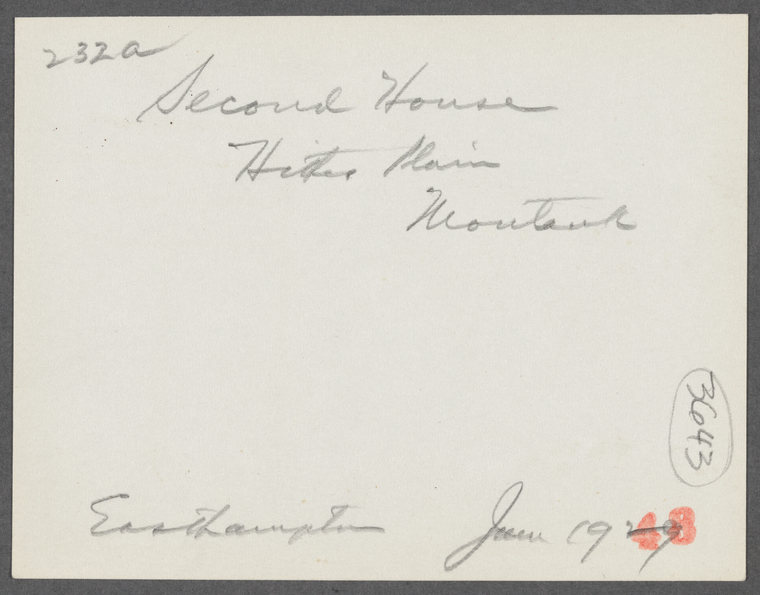 232a
Second House
Hither Plain
Montauk
3643
Easthampton June 1929
48